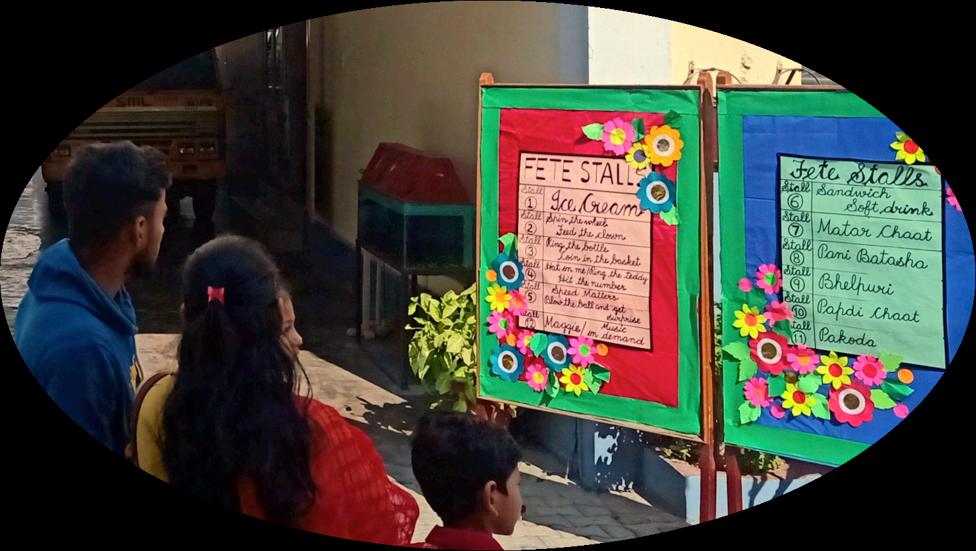 SML
FETE STALLS
Stall
1
Ice Cream
Stall
2
Spin the wheel
Feed the clown
Stall
3
Ring the bottle
Coin in the basket
Stall
4
Hit on me/Ring the teddy
Hit the number
Stall
5
Speed Matters
Blow the ball and get
surprise
Stall
12
Maggie/ Music
on demand
Fete Stalls
Stall
6
Sandwich
Soft drink
Stall
7
Matar Chaat
Stall
8
Pani Batasha
Stall
9
Bhelpuri
Stall
10
Papdi Chaat
Stall
11
Pakoda